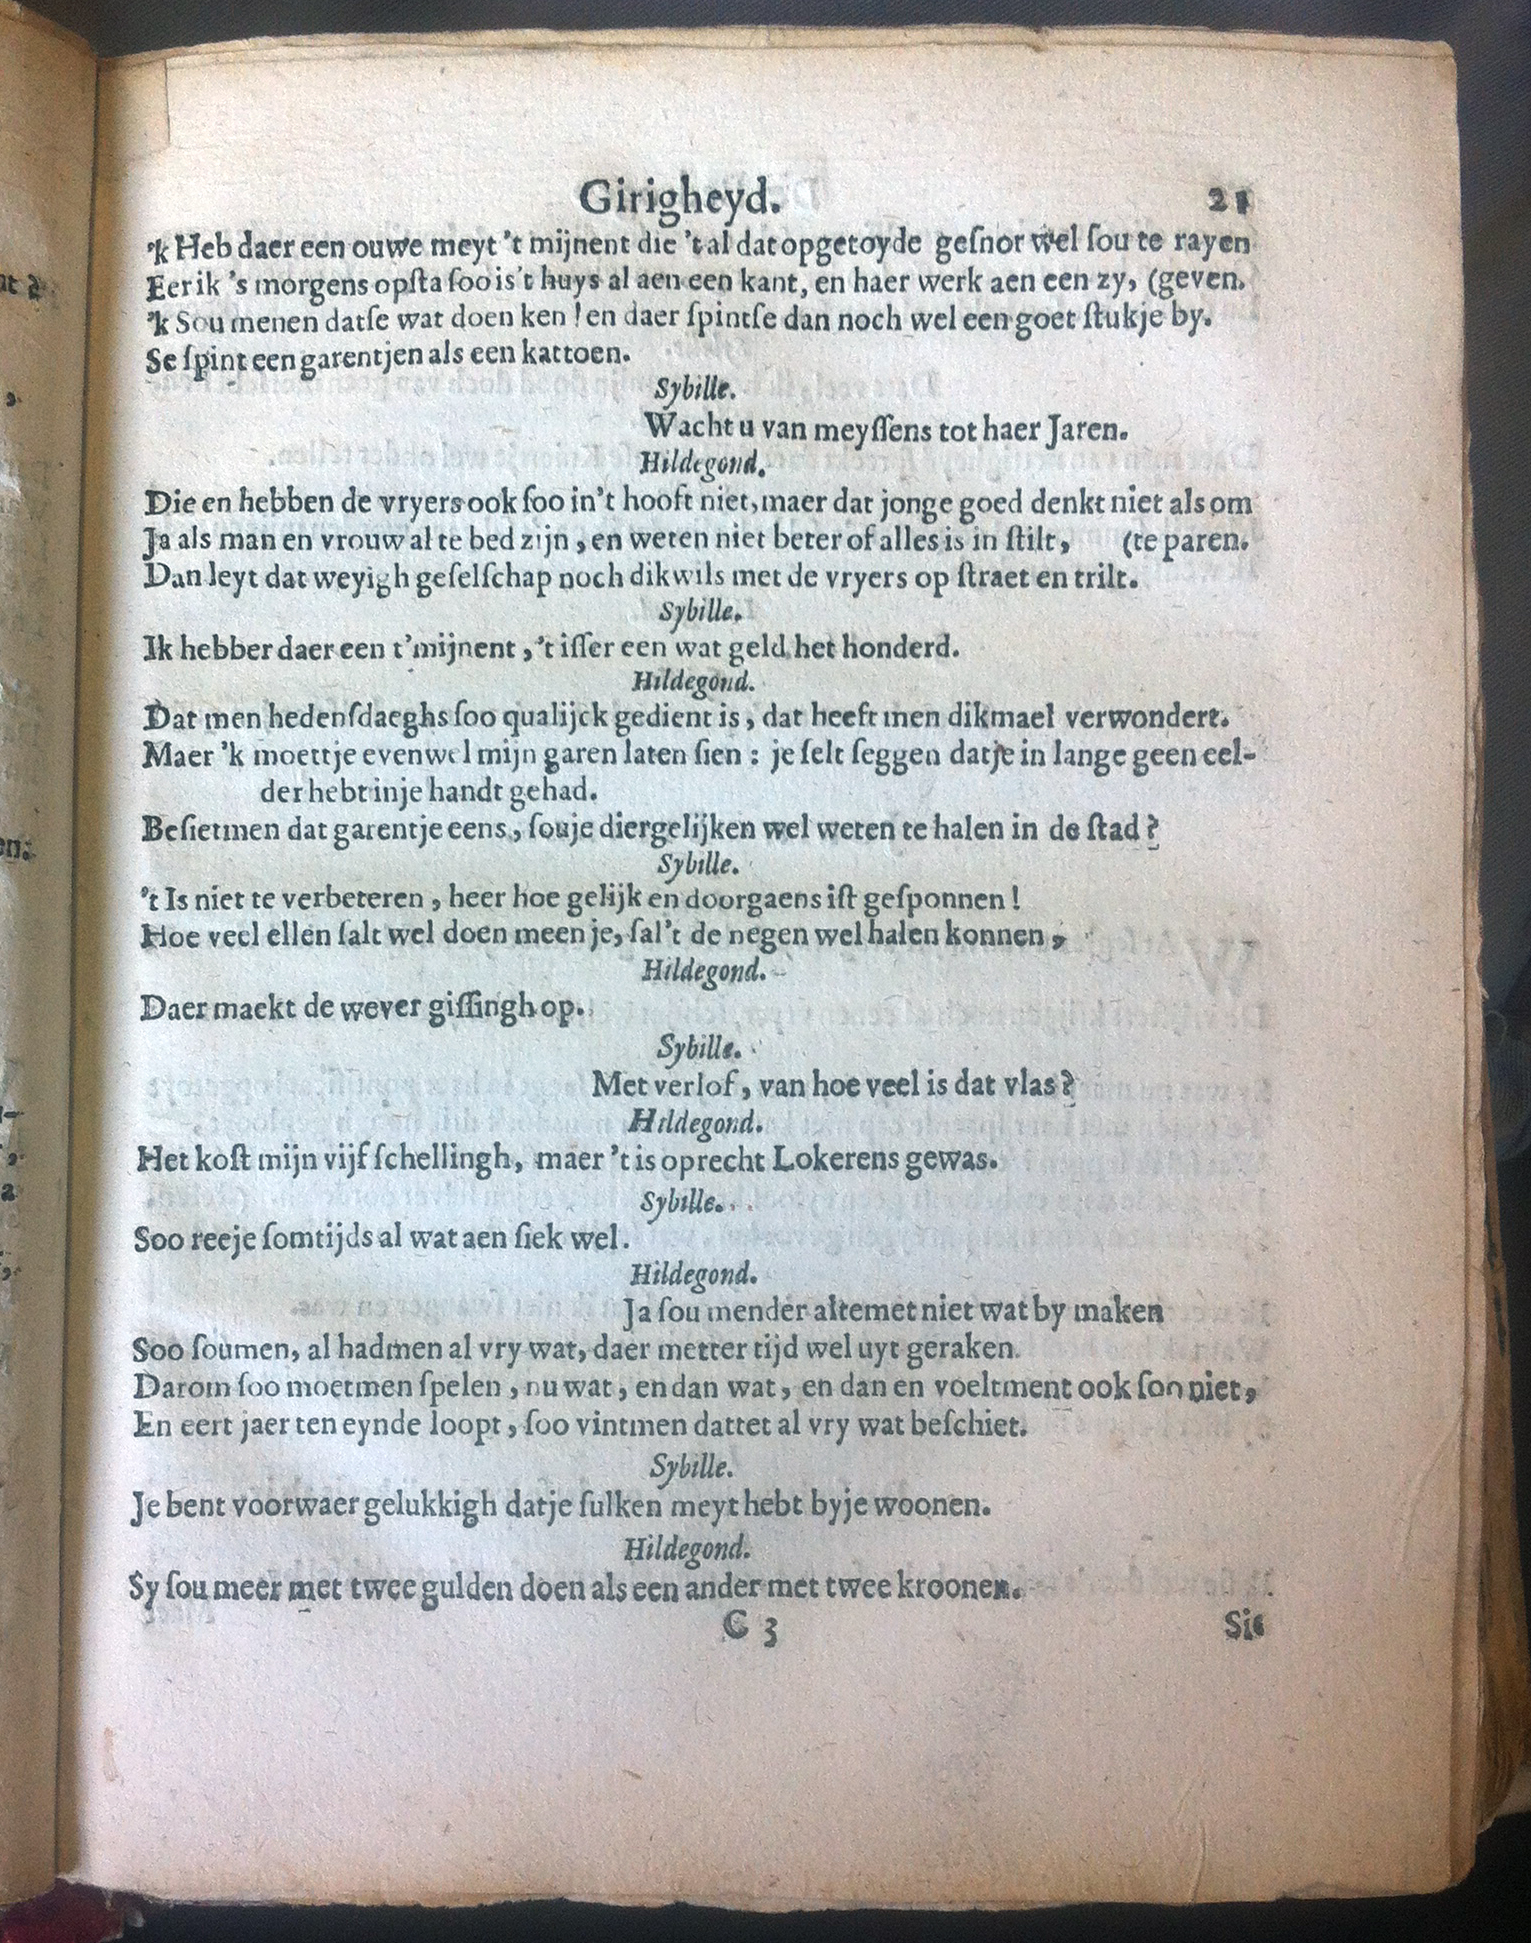 Girigheyd. 21
'k Heb daer een ouwe meyt 't mijnent die 't al dat opgetoyde geſnor wel ſou te rayen
Eer ik 's morgens opſta ſoo is't huys al aen een kant, en haer werk aen een zy, (geven.
'k Sou menen datſe wat doen ken ! en daer ſpintſe dan noch wel een goet ſtukje by.
Se ſpint een garentjen als een kattoen.
Sybille.
Wacht u van meyſſens tot haer Jaren.
Hildegond.
Die en hebben de vryers ook ſoo in't hooft niet, maer dat jonge goed denkt niet als om
Ja als man en vrouw al te bed zijn, en weten niet beter of alles is in ſtilt, (te paren.
Dan leyt dat weyigh geſelſchap noch dikwils met de vryers op ſtraet en trilt.
Sybille.
Ik hebber daer een t'mijnent, 't iſſer een wat geld het honderd.
Hildegond.
Dat men hedenſdaeghs ſoo qualijck gedient is, dat heeft men dikmael verwondert.
Maer 'k moettje evenwel mijn garen laten ſien : je ſelt ſeggen datje in lange geen eel-
der hebt inje handt gehad.
Beſietmen dat garentje eens, ſouje diergelijken wel weten te halen in de ſtad ?
Sybille.
't Is niet te verbeteren, heer hoe gelijk en doorgaens iſt geſponnen !
Hoe veel ellen ſalt wel doen meen je, ſal't de negen wel halen konnen,
Hildegond.
Daer maekt de wever giſſingh op.
Sybille.
Met verlof, van hoe veel is dat vlas ?
Hildegond.
Het koſt mijn vijf ſchellingh, maer 't is oprecht Lokerens gewas.
Sybille.
Soo reeje ſomtijds al wat aen ſiek wel.
Hildegond.
Ja ſou mender altemet niet wat by maken
Soo ſoumen, al hadmen al vry wat, daer metter tijd wel uyt geraken.
Darom ſoo moetmen ſpelen, nu wat, en dan wat, en dan en voeltment ook ſoo niet,
En eert jaer ten eynde loopt, ſoo vintmen dattet al vry wat beſchiet.
Sybille.
Je bent voorwaer gelukkigh datje ſulken meyt hebt byje woonen.
Hildegond.
Sy ſou meer met twee gulden doen als een ander met twee kroonen.
C 3 Sie